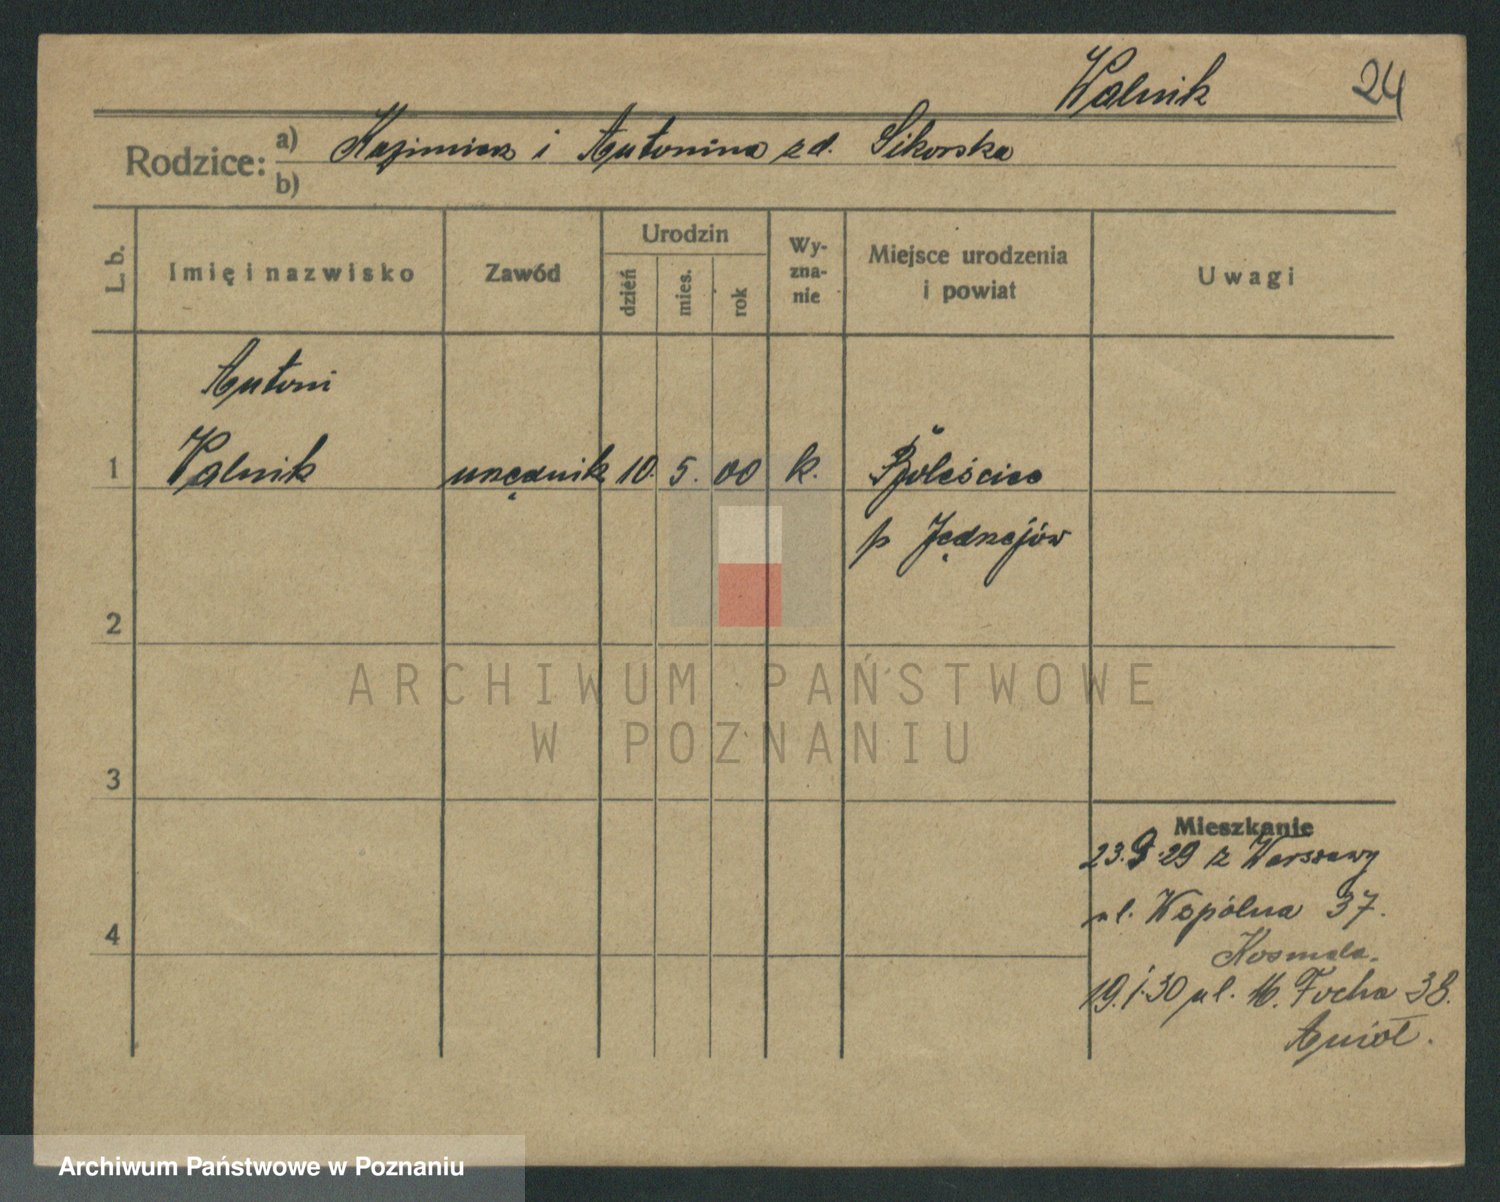 Walnik 24
Rodzice: a) Kazimierz i Antonina zd. Sikorska
b)
L. b. Imię i nazwisko Zawód Urodzin dzień mies. rok Wyzna-nie Miejsce urodzenia i powiat Uwagi
Antoni
1 Walnik urzędnik 10. 5. 00 k.
p Jędrzejów
2
ARCHIWUM PAŃSTWOWE
W POZNANIU
3
Mieszkanie
23.9.29 z Warszawy
ul. Wspólna 37.
4
Kosmala.
19.1.30 ul. M. Focha 38.
Anioł.
Archiwum Państwowe w Poznaniu